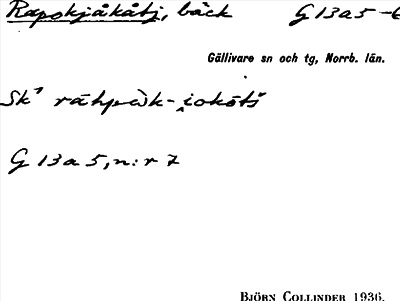 Rapokjåkåtj, bäck G 13 a 5-6
Gällivare sn och tg, Norrb. län.
Sk' rāhpɐ̀k-i̭okōtš
G 13 a 5, n:r 7
BJÖRN COLLINDER 1936.